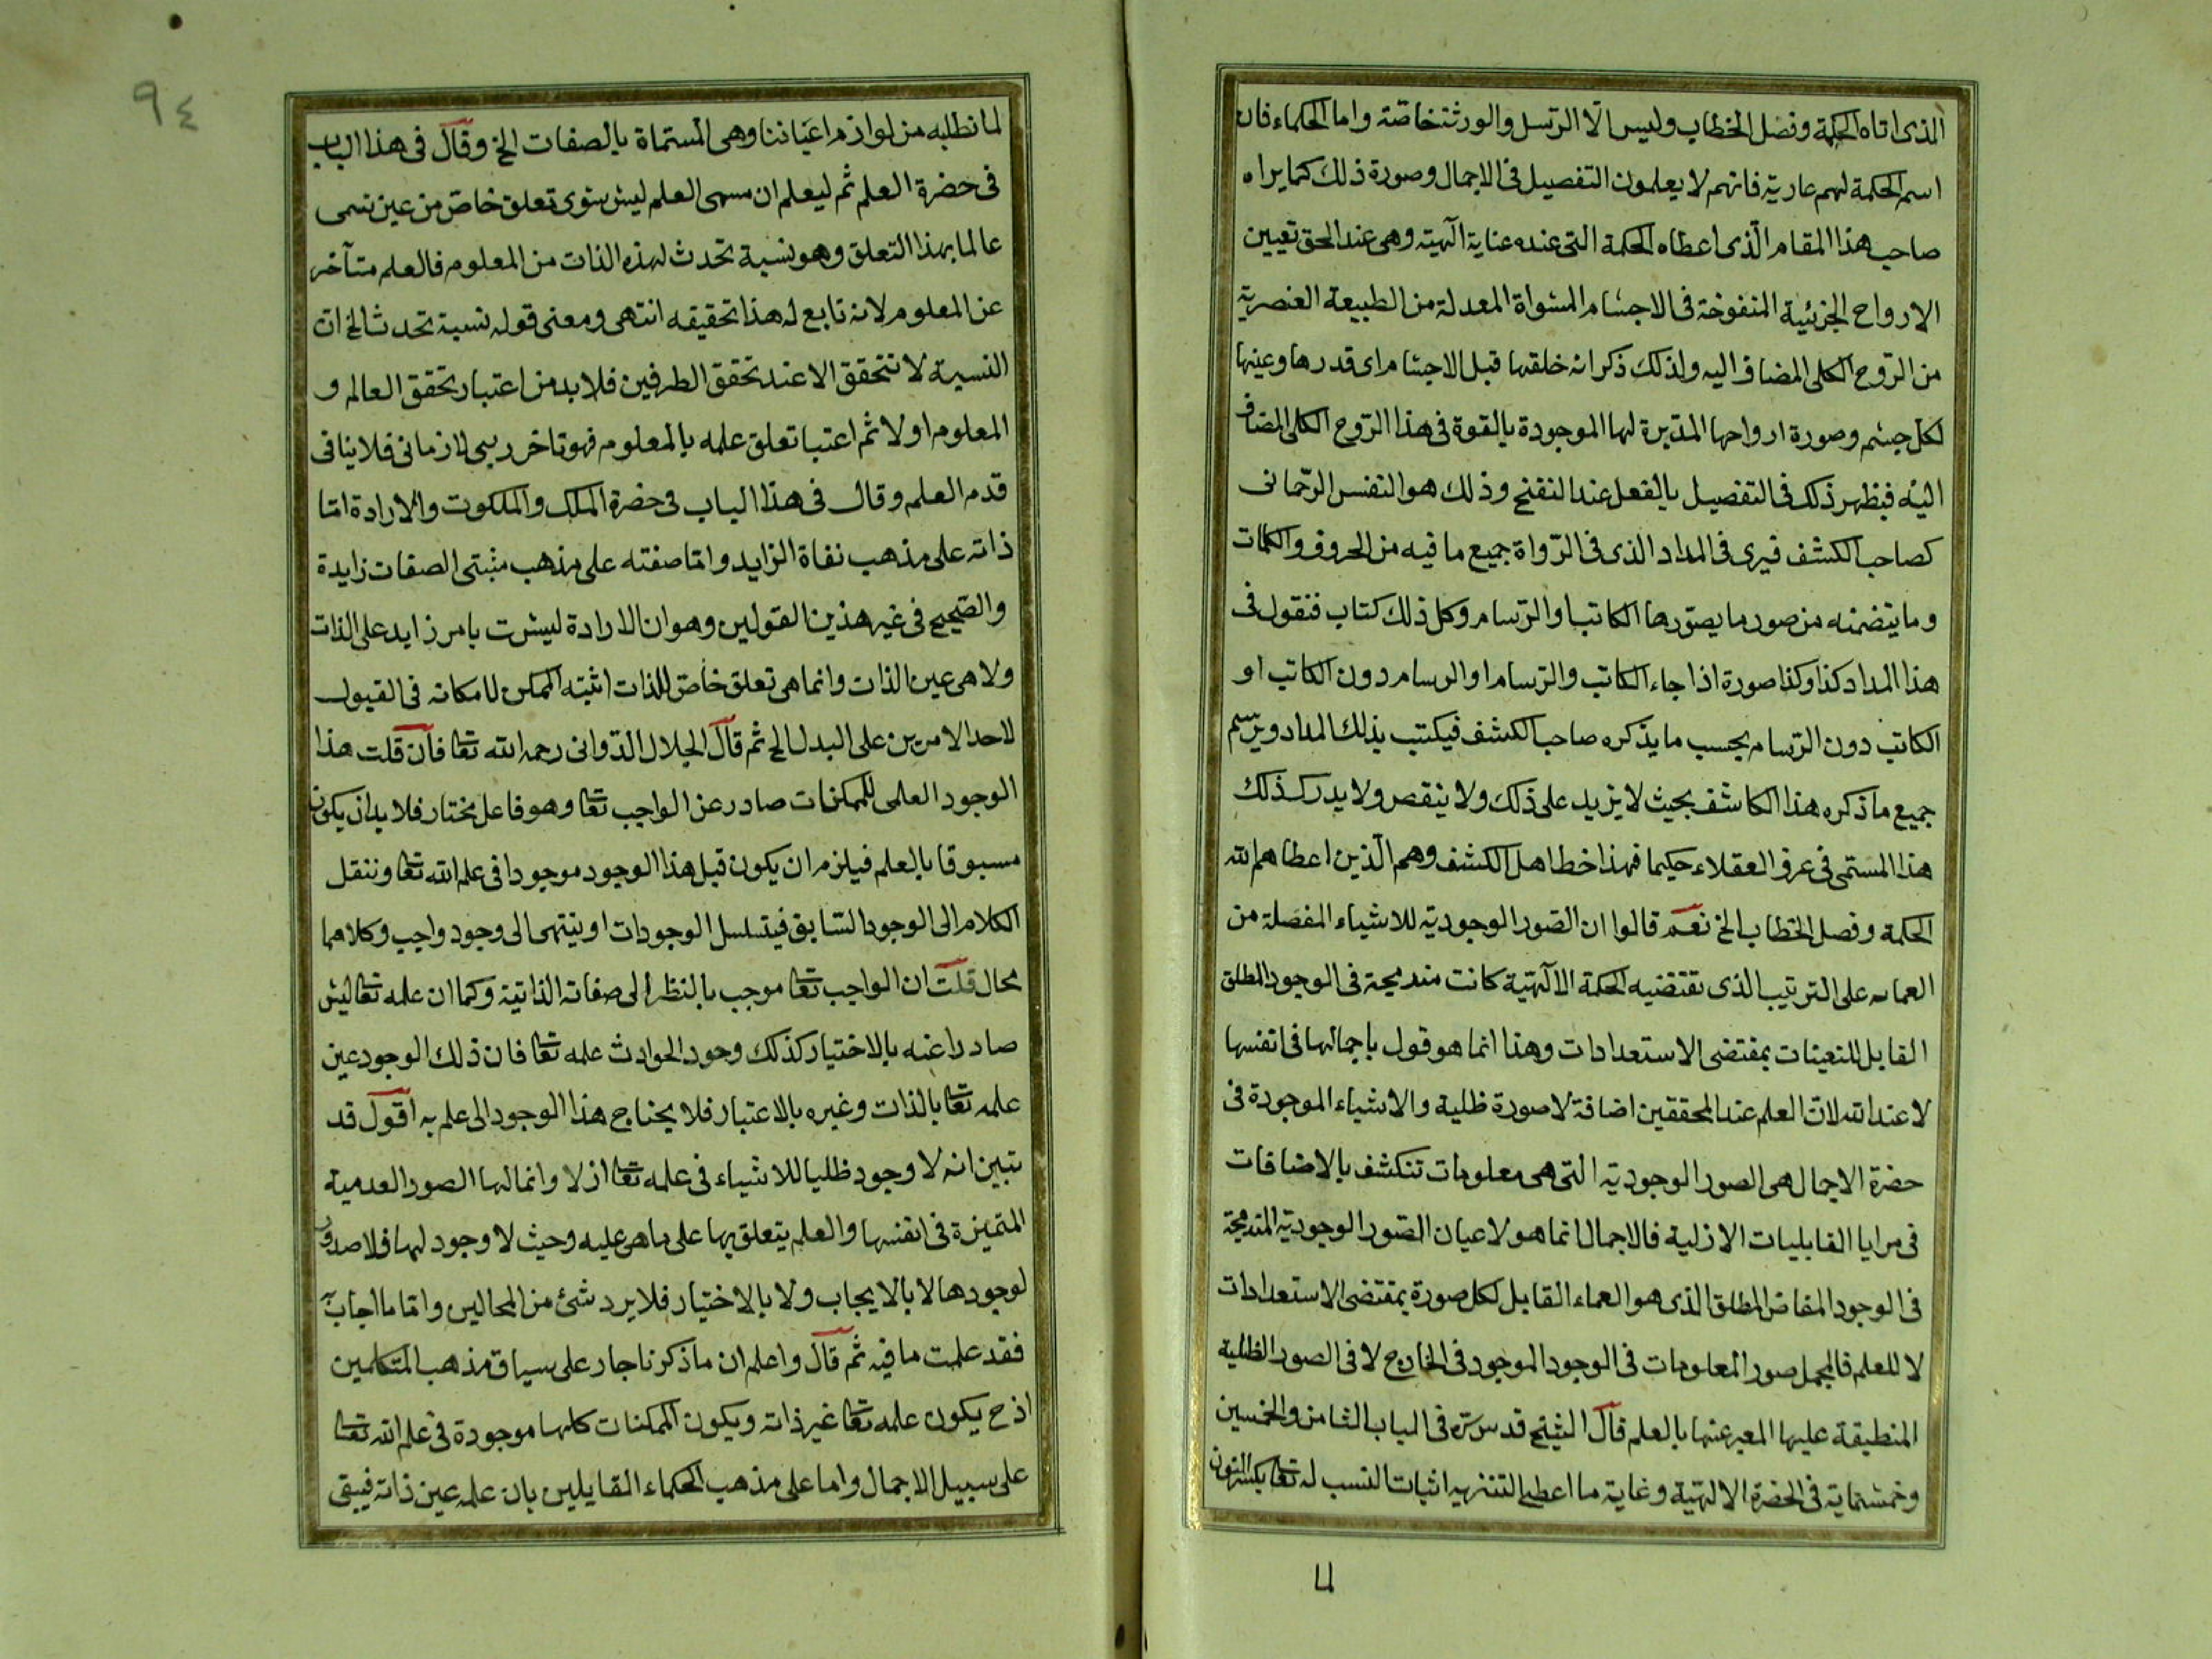 الذى اتاه الحكمة وفصل الخطاب وليس الا الرسل والورثة خاصة واما الحكماء فان
اسم الحكمة لهم عارية فانهم لا يعلمون التفصيل فى الاجمال وصورة ذلك كما يراه
صاحب هذا المقام الّذى اعطاه الحكمة التى عنده عناية آلهية وهى عند الحق تعيين
الارواح الجزئية المنفوخة فى الاجسام المسواة المعدلة من الطبيعة العنصرية
من الرّوح الكلى المضاف اليه ولذلك ذكر انه خلقها قبل الاجسام اى قدرها وعينها
لكل جسم وصورة ارواحها المدبرة لها الموجودة بالقوة فى هذا الرّوح الكلى المضاف
اليه فيظهر ذلك فى التفصيل بالفعل عند النفخ وذلك هو النفس الرّحمانى
لصاحب الكشف فيرى فى المداد الذى فى الدّواة جميع ما فيه من الحروف والكلمات
وما يتضمنه من صور ما يصوّرها الكاتب او الرّسام وكل ذلك كتاب فنقول فى
هذا المداد كذا وكذا صورة اذا جاء الكاتب والرّسام او الرسام دون الكاتب او
الكاتب دون الرّسام بحسب ما يذكره صاحب الكشف فيكتب بذلك المداد ويرسم
جميع ما ذكره هذا الكاشف بحيث لا يزيد على ذلك ولا ينقص ولا يدرك ذلك
هذا المسمى فى عرف العقلاء حكيما فهذا حظ اهل الكشف وهم الّذين اعطاهم الله
الحكمة وفصل الخطاب الخ نعم قالوا ان الصور الوجودية للاشياء المفصلة من
العماء على الترتيب الذى تقتضيه الحكمة الآلهية كانت مندمجة فى الوجود المطلق
القابل للتعينات بمقتضى الاستعدادات وهذا انما هو قول باجمالها فى انفسها
لا عند الله لان العلم عند المحققين اضافة لا صورة ظلية والاشياء الموجودة فى
حضرة الاجمال هى الصور الوجودية التى هى معلومات تنكشف بالاضافات
فى مرايا القابليات الازلية فالاجمال انما هو لاعيان الصور الوجودية المندمجة
فى الوجود المفاض المطلق الذى هو العماء القابل لكل صورة بمقتضى الاستعدادات
لا للعلم فالمجمل صور المعلومات فى الوجود الموجود فى الخارج لا فى الصور الظلية
المنطبقة عليها المعبر عنها بالعلم قال الشيخ قدس سره فى الباب الثامن والخمسين
وخمسماية فى الحضرة الالهية وغاية ما اعطى التنزيه اثبات النسب له تعا بكسر النون
لما نطلبه من لوازم اعياننا وهى المسماة بالصفات الخ وقال فى هذا الباب
فى حضرة العلم ثم ليعلم ان مسمى العلم ليس سوى تعلق خاص من عين تسمى
عالما بهذا التعلق وهو نسبة تحدث لهذه الذات من المعلوم فالعلم متأخر
عن المعلوم لانه تابع له هذا تحقيقه انتهى ومعنى قوله نسبة تحدث الخ ان
النسبة لا تتحقق الا عند تحقق الطرفين فلا بد من اعتبار تحقق العالم و
المعلوم اولا ثم اعتبا تعلق علمه بالمعلوم فهو تاخر رتبى لا زمانى فلا ينافى
قدم العلم وقال فى هذا الباب فى حضرة الملك والملكوت والارادة امّا
ذاته على مذهب نفاة الزايد وامّا صفته على مذهب مثبتى الصفات زايدة
والصحيح فى غير هذين القولين وهو ان الارادة ليست بامر زايد على الذات
ولا هى عين الذات وانما هى تعلق خاص للذات اثبته الممكن لامكانه فى القبول
لاحد الامرين على البدل الخ ثم قال الجلال الدّوانى رحمه الله تعا فان قلت هذا
الوجود العلمى للممكنات صادر عن الواجب تعا وهو فاعل مختار فلا بد ان يكون
مسبوقا بالعلم فيلزم ان يكون قبل هذا الوجود موجودا فى علم الله تعا وننقل
الكلام الى الوجود السّابق فيتسلسل الوجودات او ينتهى الى وجود واجب وكلاهما
محال قلت ان الواجب تعا موجب بالنظر الى صفاته الذاتية وكما ان علمه تعا ليس
صادرا عنه بالاختيار كذلك وجود الحوادث علمه تعا فان ذلك الوجود عين
علمه تعا بالذات وغيره بالاعتبار فلا يحتاج هذا الوجود الى علم به اقول قد
تبين انه لا وجود ظليا للاشياء فى علمه تعا ازلا وانما لها الصور العدمية
المتميزة فى انفسها والعلم يتعلق بها على ما هى عليه وحيث لا وجود لها فلا صدور
لوجودها لا بالايجاب ولا بالاختيار فلا يرد شئ من المحالين وامّا ما اجاب به
فقد علمت ما فيه ثم قال واعلم ان ما ذكرنا جار على سياق مذهب المتكلمين
اذ ح يكون علمه تعا غير ذاته ويكون الممكنات كلها موجودة فى علم الله تعا
على سبيل الاجمال واما على مذهب الحكماء القايلين بان علمه عين ذاته فيبقى
٩٤